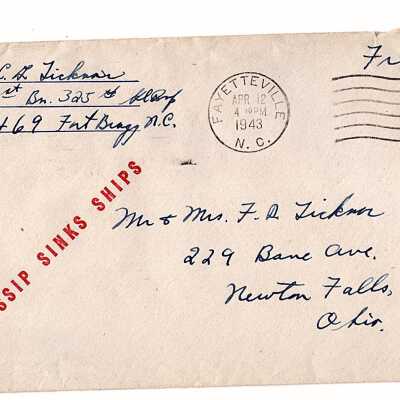 C. L. Ticknor
st Bn. 325th
469 Fort Bragg N.C.
Fr
FAYETTEVILLE
APR 12
4 PM
1943
N. C.
SSIP SINKS SHIPS
Mr & Mrs. F. A. Ticknor
229 Bane Ave.
Newton Falls,
Ohio.